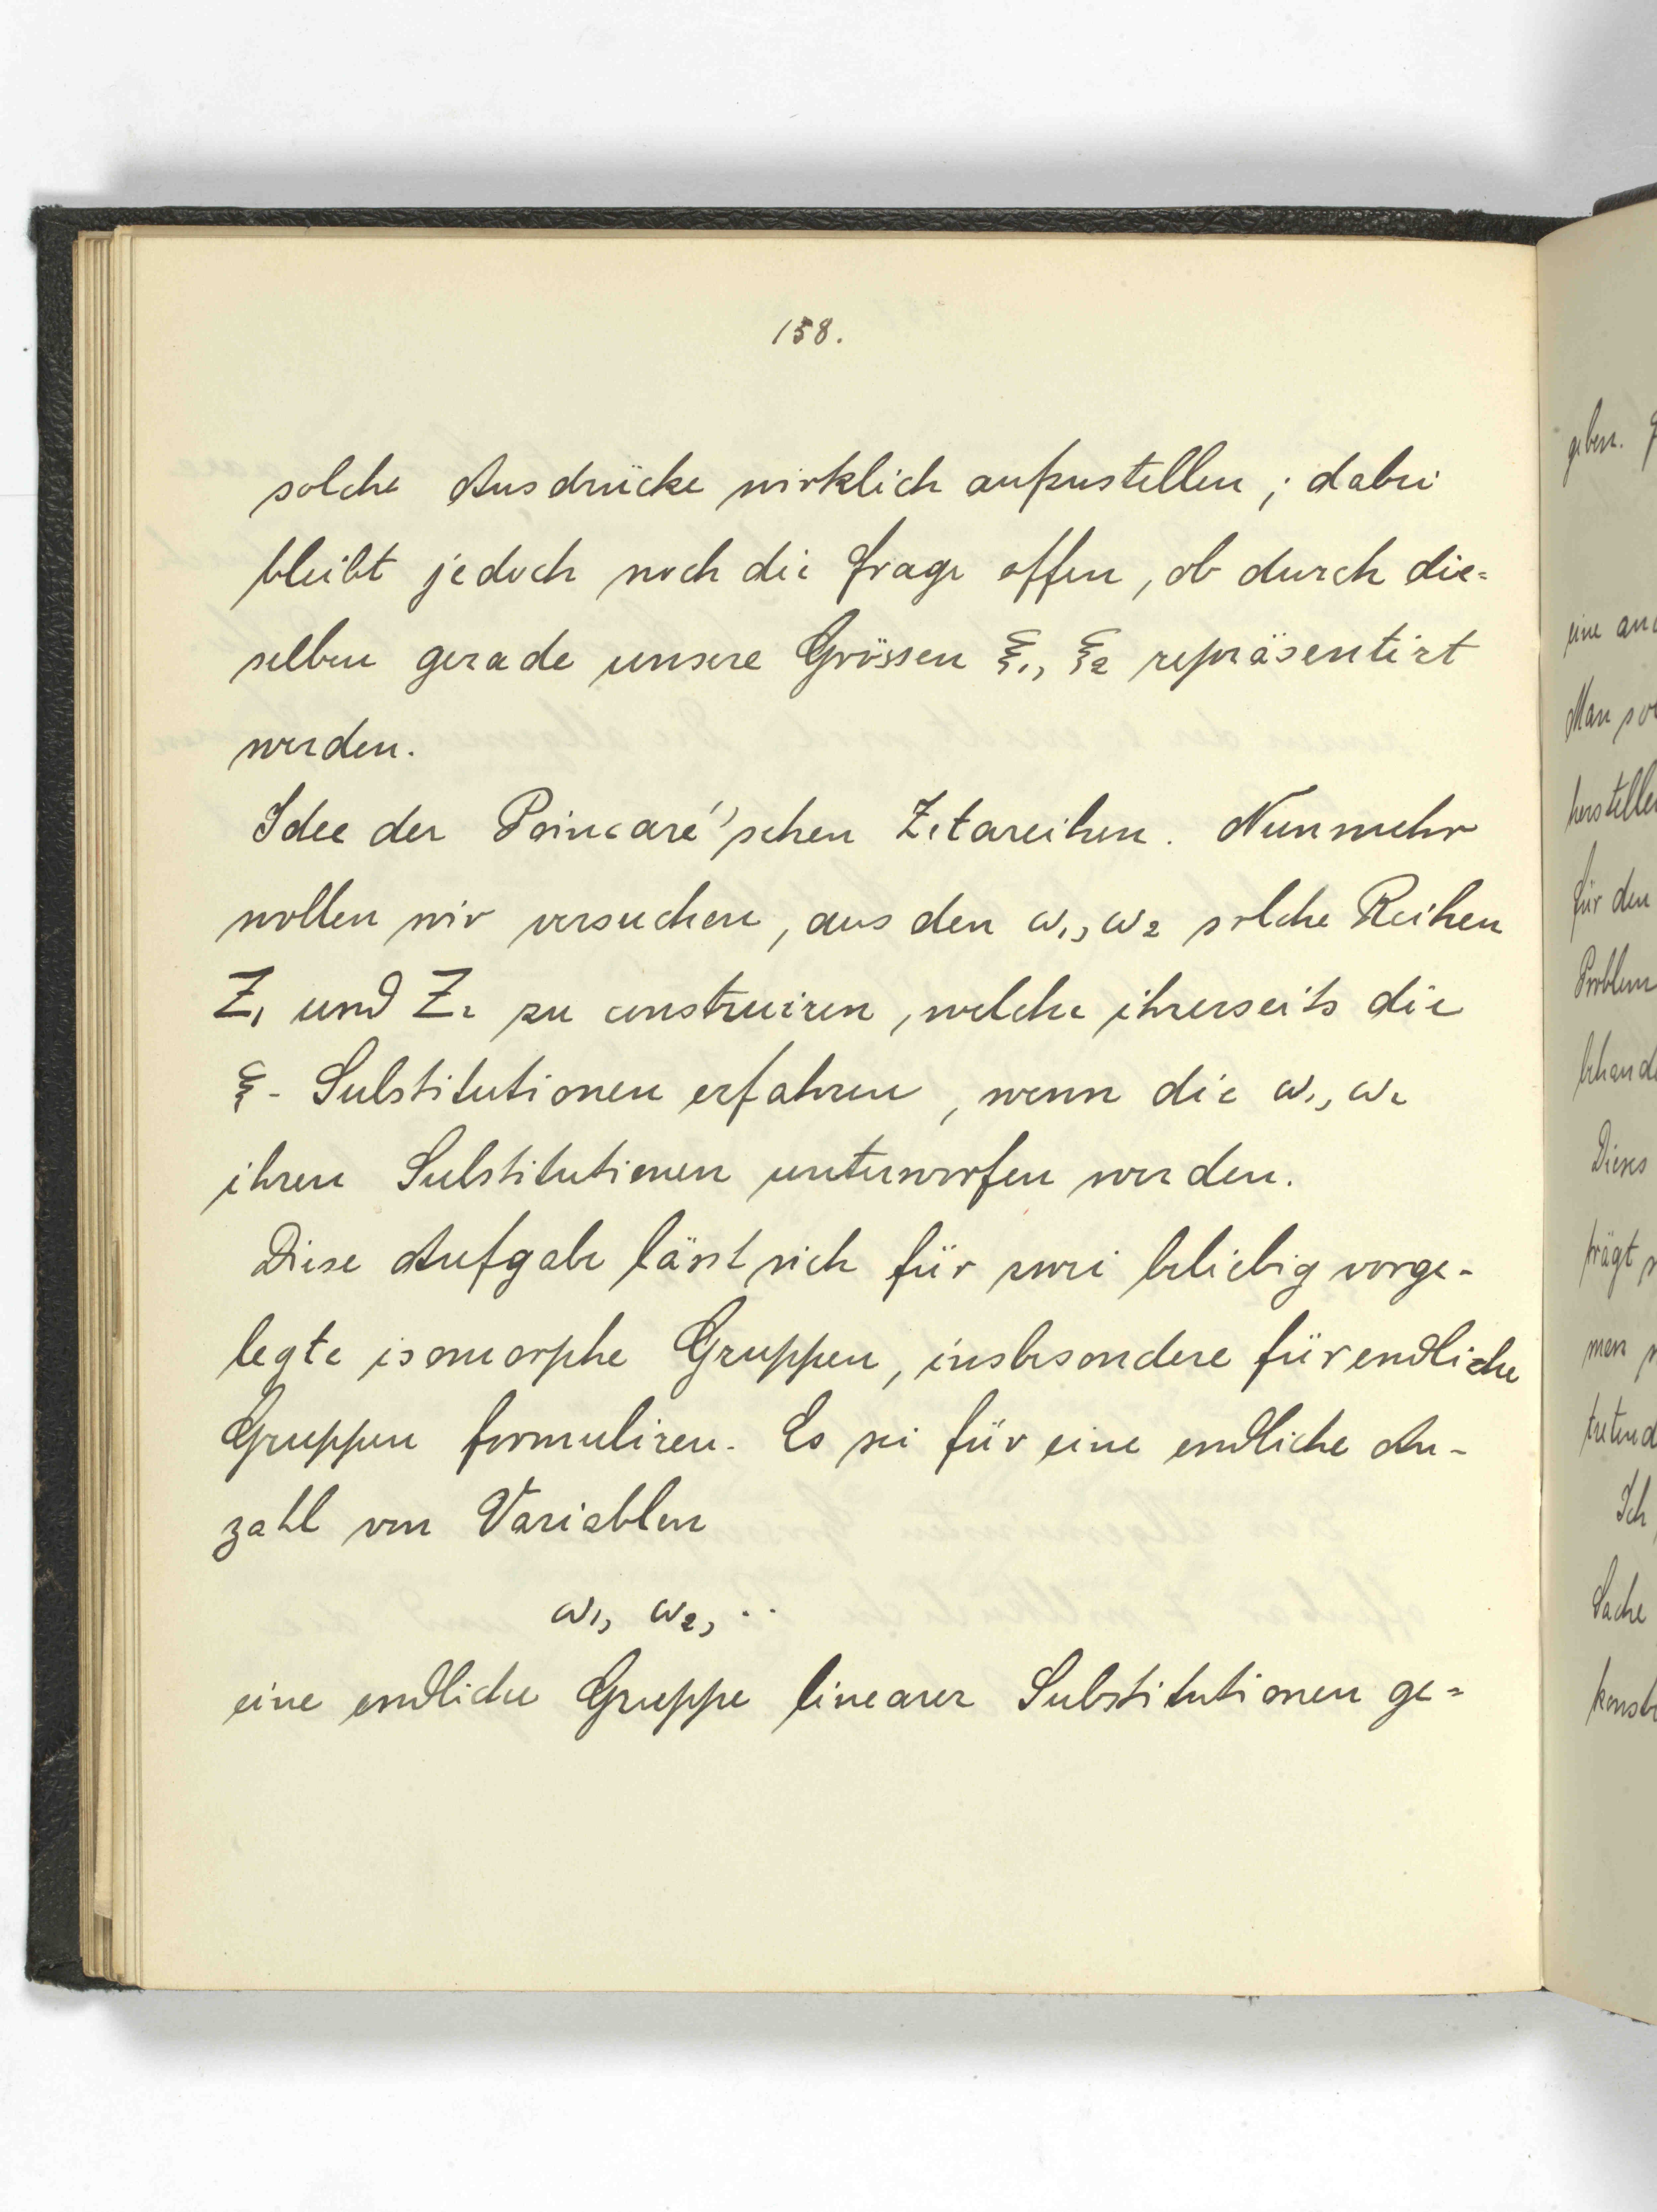 158.
solche Ausdrücke wirklich aufzustellen; dabei
bleibt jedoch noch die Frage offen, ob durch die=
selben gerade unsere Grössen ξ₁, ξ₂ repräsentirt
werden.
Idee der Poincaré'schen Zetareihen. Nunmehr
wollen wir versuchen, aus den ω₁, ω₂ solche Reihen
Z₁ und Z₂ zu construiren, welche ihrerseits die
ξ- Substitutionen erfahren, wenn die ω₁, ω₂
ihren Substitutionen unterworfen werden.
Diese Aufgabe lässt sich für zwei beliebig vorge-
legte isomorphe Gruppen, insbesondere für endliche
Gruppen formuliren. Es sei für eine endliche An-
zahl von Variablen
ω₁, ω₂, ..
eine endliche Gruppe linearer Substitutionen ge=
geben.
eine
Man
herstelle
für den
Problem
Dieses
prägt
men
Ich
Sache